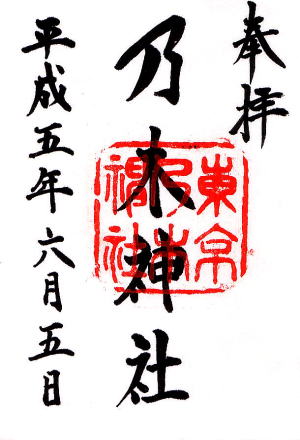 奉拝
乃木神社
東京乃木神社
平成五年六月五日